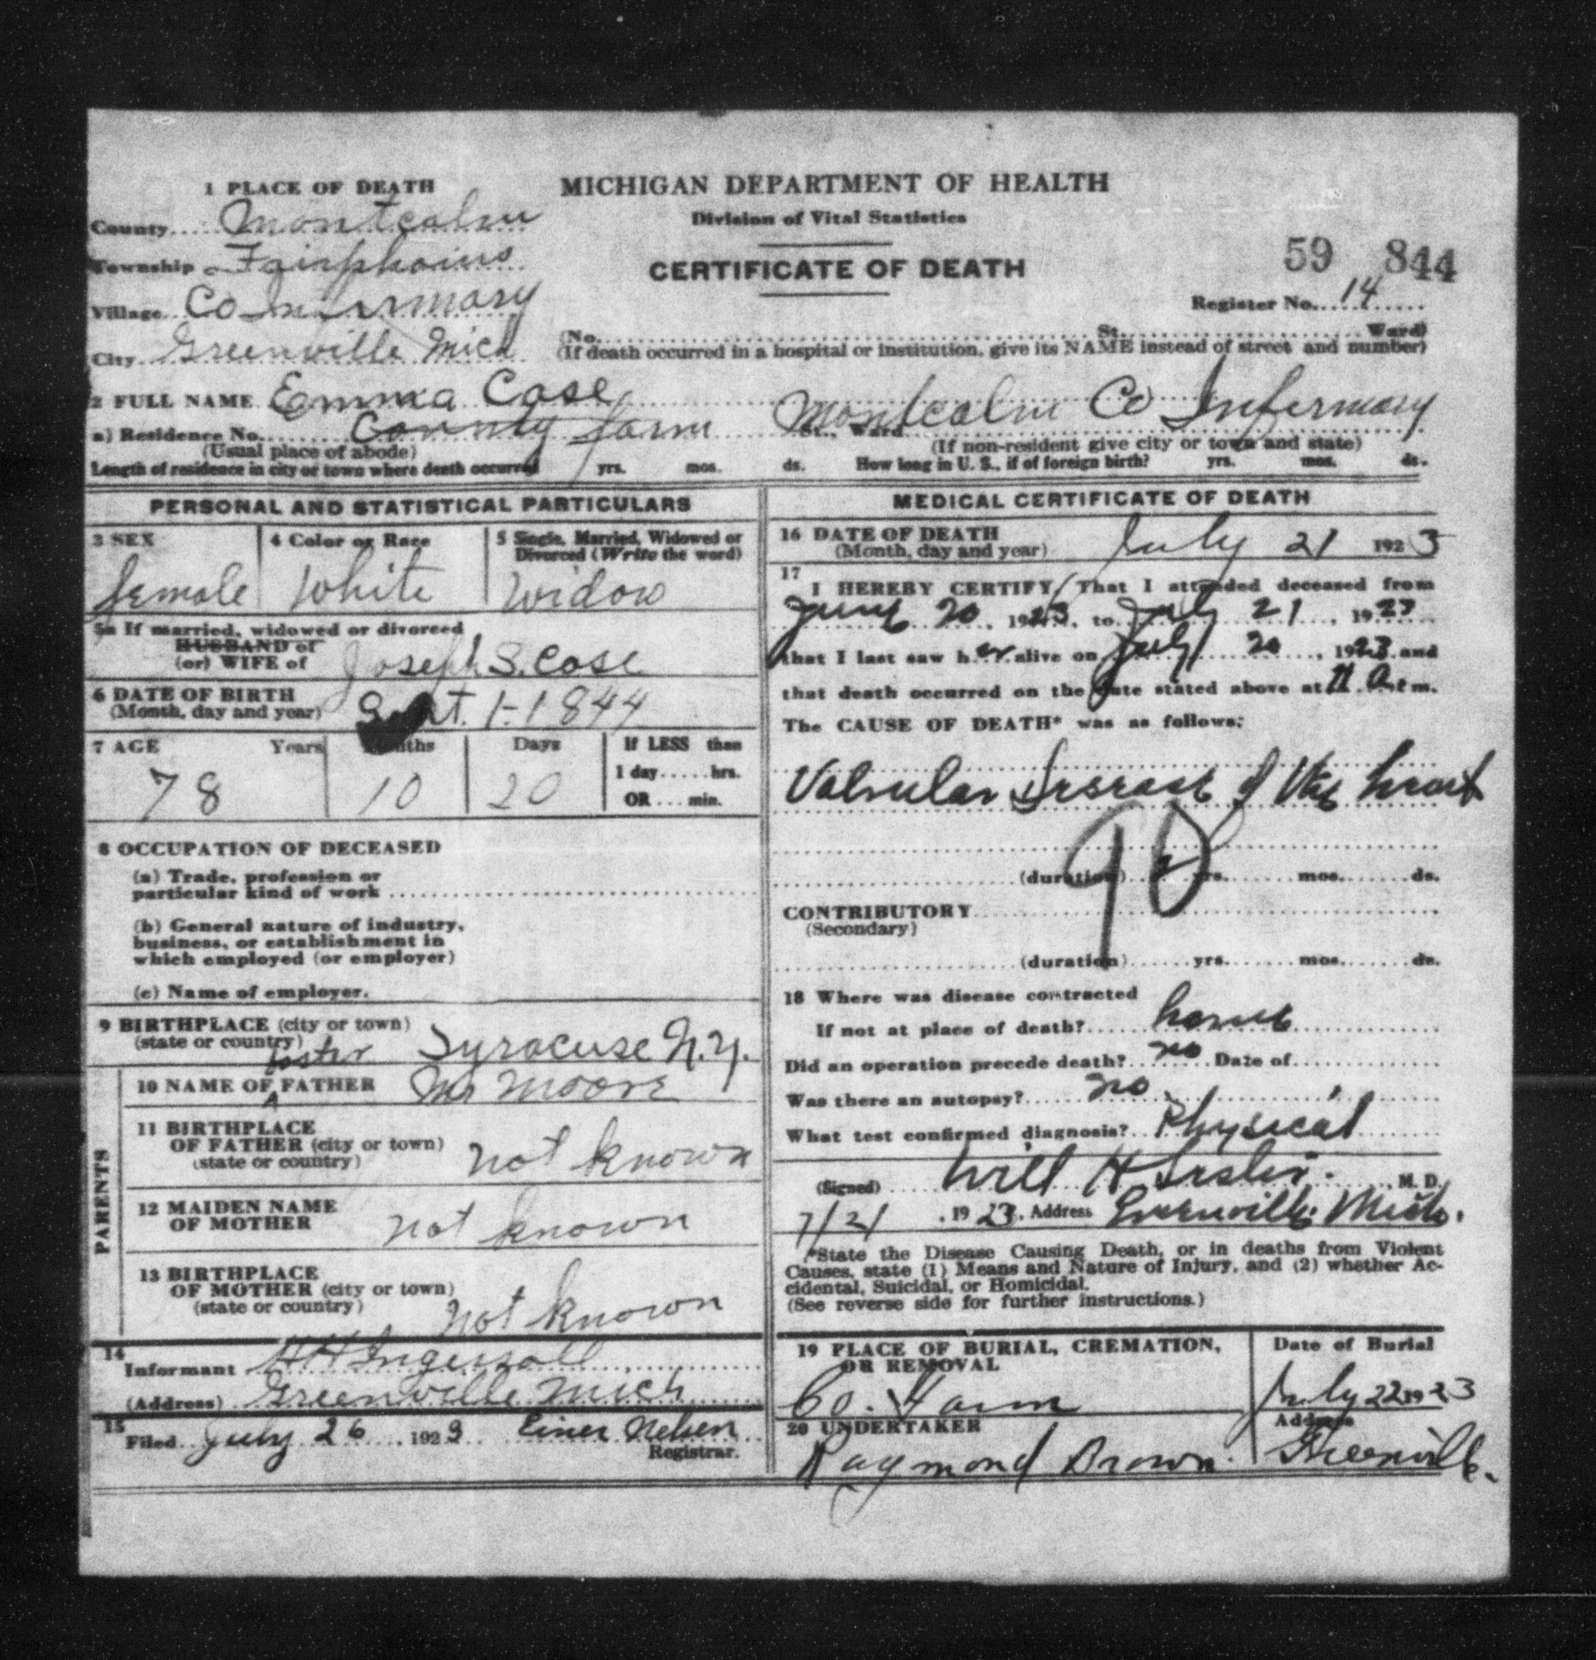 1 PLACE OF DEATH
MICHIGAN DEPARTMENT OF HEALTH
Division of Vital Statistics
CERTIFICATE OF DEATH
County Montcalm
Township Fairplains
Village Co Infirmary
City Greenville Mich
59 844
Register No. 14
(No. St. Ward)
(If death occurred in a hospital or institution, give its NAME instead of street and number)
2 FULL NAME Emma Case
a) Residence No. County farm St., Ward Montcalm Co Infermary
(Usual place of abode)
(If non-resident give city or town and state)
Length of residence in city or town where death occurred yrs. mos. ds. How long in U. S., if of foreign birth? yrs. mos. ds.
PERSONAL AND STATISTICAL PARTICULARS
3 SEX
female
4 Color or Race
White
5 Single, Married, Widowed or
Divorced (Write the word)
Widow
5a If married, widowed or divorced
HUSBAND of
(or) WIFE of Joseph S. Case
6 DATE OF BIRTH
(Month, day and year) Sept. 1-1844
7 AGE Years Months Days
78 10 20
If LESS than
1 day......hrs.
OR....min.
8 OCCUPATION OF DECEASED
(a) Trade, profession or
particular kind of work
(b) General nature of industry,
business, or establishment in
which employed (or employer)
(c) Name of employer.
9 BIRTHPLACE (city or town)
(state or country) Syracuse N.Y.
PARENTS
foster
10 NAME OF FATHER Mr Moore
11 BIRTHPLACE
OF FATHER (city or town)
(state or country) not known
12 MAIDEN NAME
OF MOTHER not known
13 BIRTHPLACE
OF MOTHER (city or town)
(state or country) not known
14
Informant H H Ingersoll
(Address) Greenville Mich
15
Filed July 26, 1923 Einer Nelsen
Registrar.
MEDICAL CERTIFICATE OF DEATH
16 DATE OF DEATH
(Month, day and year) July 21 1923
17
I HEREBY CERTIFY, That I attended deceased from
June 20, 1923, to July 21, 1923
that I last saw her alive on July 20, 1923 and
that death occurred on the date stated above at 11 A.m.
The CAUSE OF DEATH* was as follows:
Valvular Disease of the heart
90
(duration) yrs. mos. ds.
CONTRIBUTORY
(Secondary)
(duration) yrs. mos. ds.
18 Where was disease contracted
If not at place of death? home
Did an operation precede death? no Date of
Was there an autopsy? no
What test confirmed diagnosis? Physical
(Signed) Will H M. D.
7/21, 1923, Address Greenville Mich.
*State the Disease Causing Death, or in deaths from Violent
Causes, state (1) Means and Nature of Injury, and (2) whether Ac-
cidental, Suicidal, or Homicidal.
(See reverse side for further instructions.)
19 PLACE OF BURIAL, CREMATION,
OR REMOVAL
Co. Farm
Date of Burial
July 22 1923
20 UNDERTAKER
Raymond Brown
Address
Greenville.